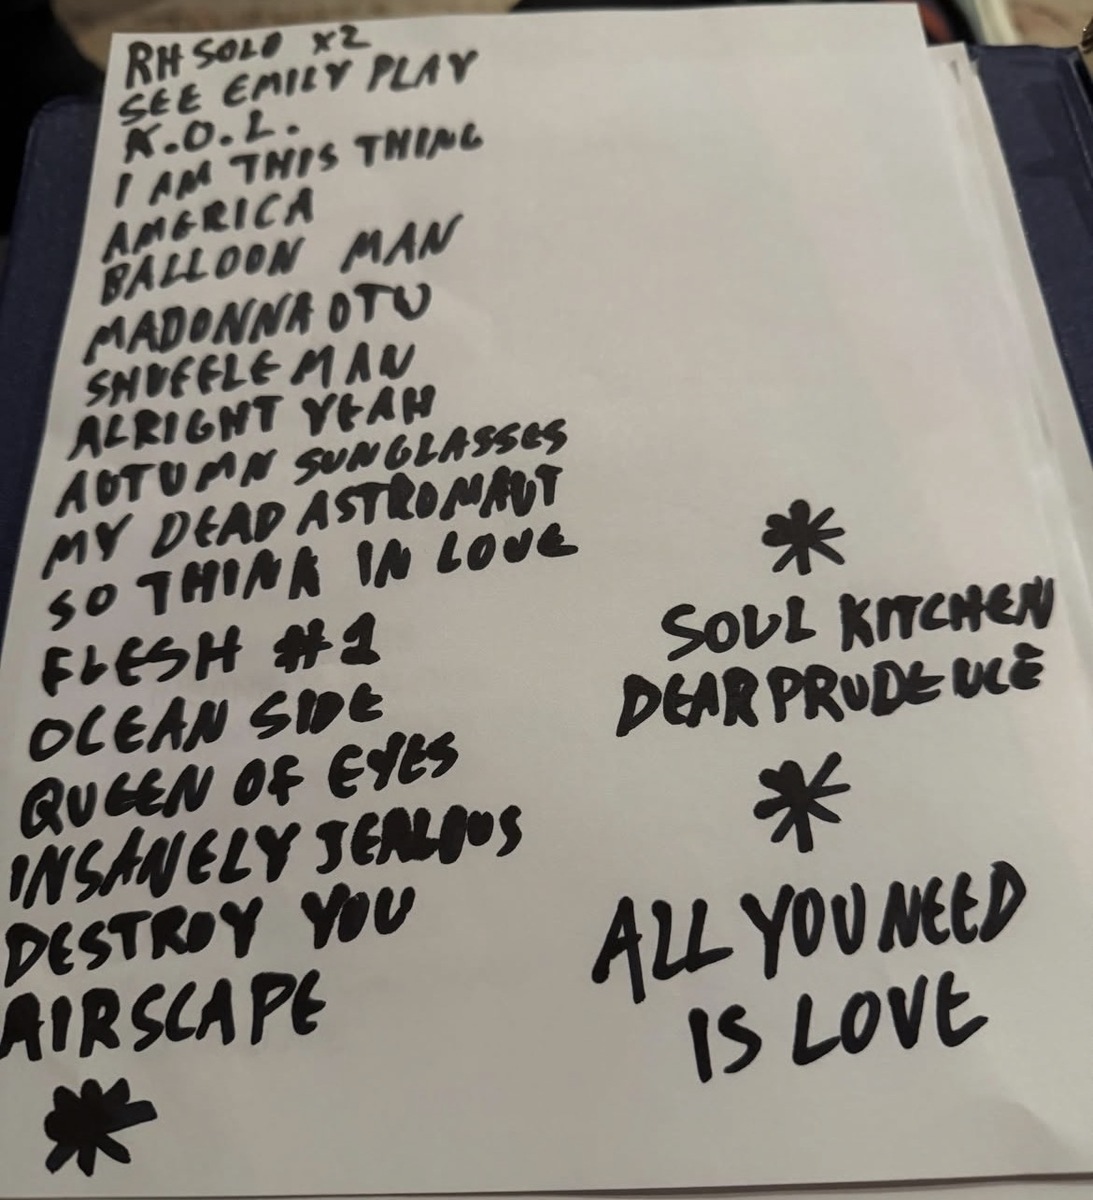 RH SOLO x2
SEE EMILY PLAY
K.O.L.
I AM THIS THING
AMERICA
BALLOON MAN
MADONNA OTW
SHUFFLE MAN
ALRIGHT YEAH
AUTUMN SUNGLASSES
MY DEAD ASTRONAUT
SO THINK IN LOVE
FLESH #1
OCEAN SIDE
QUEEN OF EYES
INSANELY JEALOUS
DESTROY YOU
AIRSCAPE
SOUL KITCHEN
DEAR PRUDENCE
ALL YOU NEED
IS LOVE